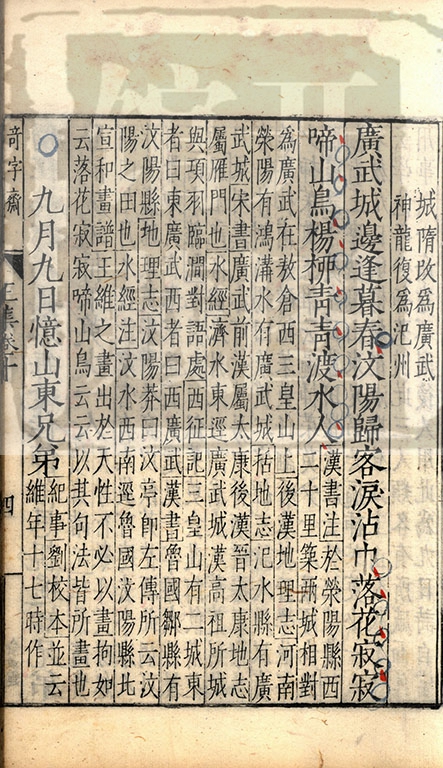 城隋改為廣武
神龍復為汜州
廣武城邊逢暮春汶陽歸客淚沾巾落花寂寂
啼山鳥楊柳青青渡水人
漢書注於滎陽縣西
二十里築兩城相對
為廣武在敖倉西三皇山上後漢地理志河南
滎陽有鴻溝水有廣武城括地志汜水縣有廣
武城宋書廣武前漢屬太康後漢晉太康地志
屬雁門也水經濟水東逕廣武城漢高祖所城
與項羽臨澗對語處西征記三皇山有二城東
者曰東廣武西者曰西廣武漢書魯國鄒縣有
汶陽縣地理志汶陽莽曰汶亭即左傳所云汶
陽之田也水經注汶水西南逕魯國汶陽縣北
宣和畫譜王維之畫出於天性不必以畫拘如
云落花寂寂啼山鳥云云以其句法皆所畫也
九月九日憶山東兄弟
紀事劉校本並云
維年十七時作
奇字齋
王集卷十
四